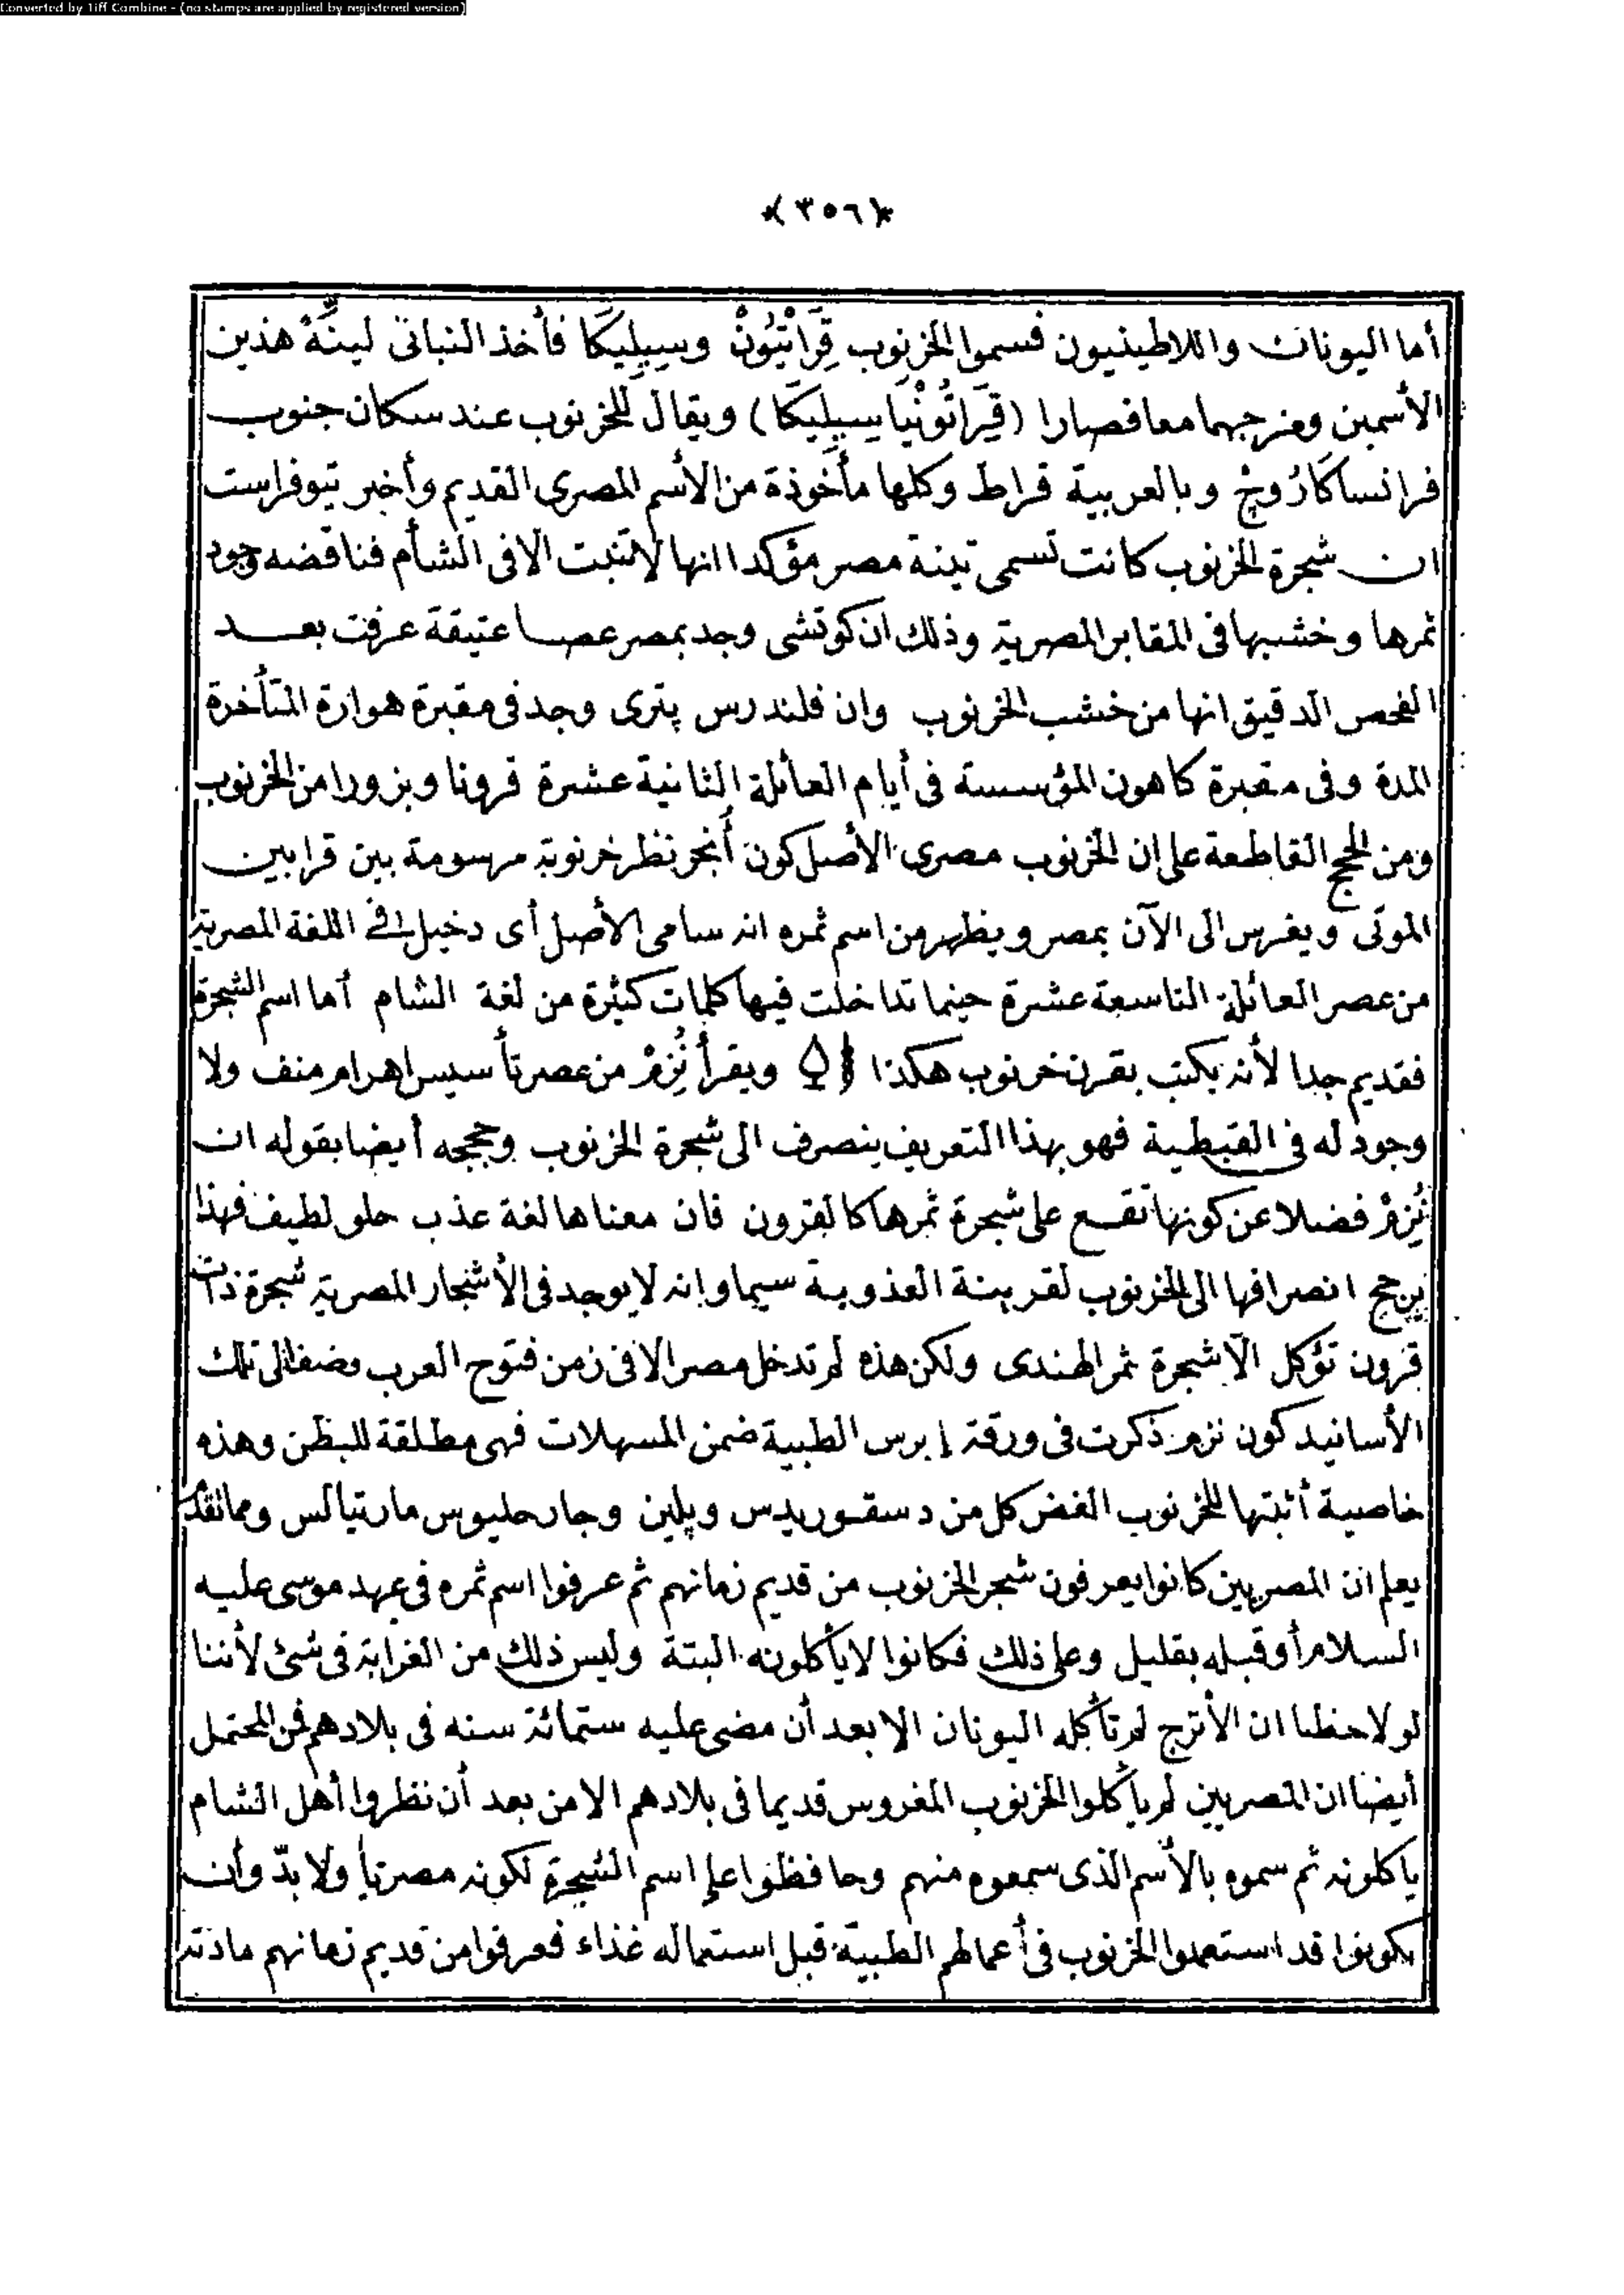 Converted by Tiff Combine - (no stamps are applied by registered version)
﴿٣٥٦﴾
أما اليونان واللاطينيون فسموا الخرنوب قِرَاتْيُونْ وسِيلِيكَا فأخذ النباتى لينّهْ هذين
الأسمين ومزجهما معا فصارا (قِرَاتُونْيَا سِيلِيكَا) ويقال للخرنوب عند سكان جنوب
فرانسا كَارُوجْ وبالعربية قراط وكلها مأخوذة من الأسم المصرى القديم وأخبر تيوفراست
ان شجرة الخرنوب كانت تسمى تينة مصر مؤكدا انها لا تنبت الا فى الشأم فناقضه وجود
ثمرها وخشبها فى المقابر المصرية وذلك ان كوتشى وجد بمصر عصا عتيقة عرفت بعد
الفحص الدقيق انها من خشب الخرنوب وان فلندرس پترى وجد فى مقبرة هوارة المتأخرة
المدة وفى مقبرة كاهون المؤسسة فى أيام العائلة الثانية عشرة قرونا وبزورا من الخرنوب
ومن الحجج القاطعة على ان الخرنوب مصرى الأصل كون أُنجر نظر خرنوبة مرسومة بين قرابين
الموتى ويغرس الى الآن بمصر ويظهر من اسم ثمره انه سامى الأصل أى دخيل فى اللغة المصرية
من عصر العائلة التاسعة عشرة حينما تداخلت فيها كلمات كثيرة من لغة الشام أما اسم الشجرة
فقديم جدا لأنه يكتب بقرن خرنوب هكذا ويقرأ نُزِمْ من عصر تأسيس اهرام منف ولا
وجود له فى القبطية فهو بهذا التعريف ينصرف الى شجرة الخرنوب وحججه أيضا بقوله ان
نُزِمْ فضلا عن كونها تقع على شجرة ثمرها كالقرون فان معناها لغة عذب حلو لطيف فهذا
يرجح انصرافها الى الخرنوب لقرينة العذوبة سيما وانه لا يوجد فى الأشجار المصرية شجرة ذات
قرون تؤكل الا شجرة ثمر الهندى ولكن هذه لم تدخل مصر الا فى زمن فتوح العرب وضف الى تلك
الأسانيد كون نزم ذكرت فى ورقة إبرس الطبية ضمن المسهلات فهى مطلقة للبطن وهذه
خاصية أثبتها للخرنوب الغض كل من دسقوريدس وپلين وجارحليوس مارتيالس ومما تقدّم
يعلم ان المصريين كانوا يعرفون شجر الخرنوب من قديم زمانهم ثم عرفوا اسم ثمره فى عهد موسى عليه
السلام أو قبله بقليل وعلى ذلك فكانوا لا يأكلونه البتة وليس ذلك من الغرابة فى شئ لأننا
لو لاحظنا ان الأترج لم تأكله اليونان الا بعد أن مضى عليه ستمائة سنه فى بلادهم فمن المحتمل
أيضا ان المصريين لم يأكلوا الخرنوب المغروس قديما فى بلادهم الا من بعد أن نظروا أهل الشام
ياكلونه ثم سموه بالأسم الذى سمعوه منهم وحافظوا على اسم الشجرة لكونه مصريا ولا بدّ وأن
يكونوا قد استعملوا الخرنوب فى أعمالهم الطبية قبل استعماله غذاء فعرفوا من قديم زمانهم مادته